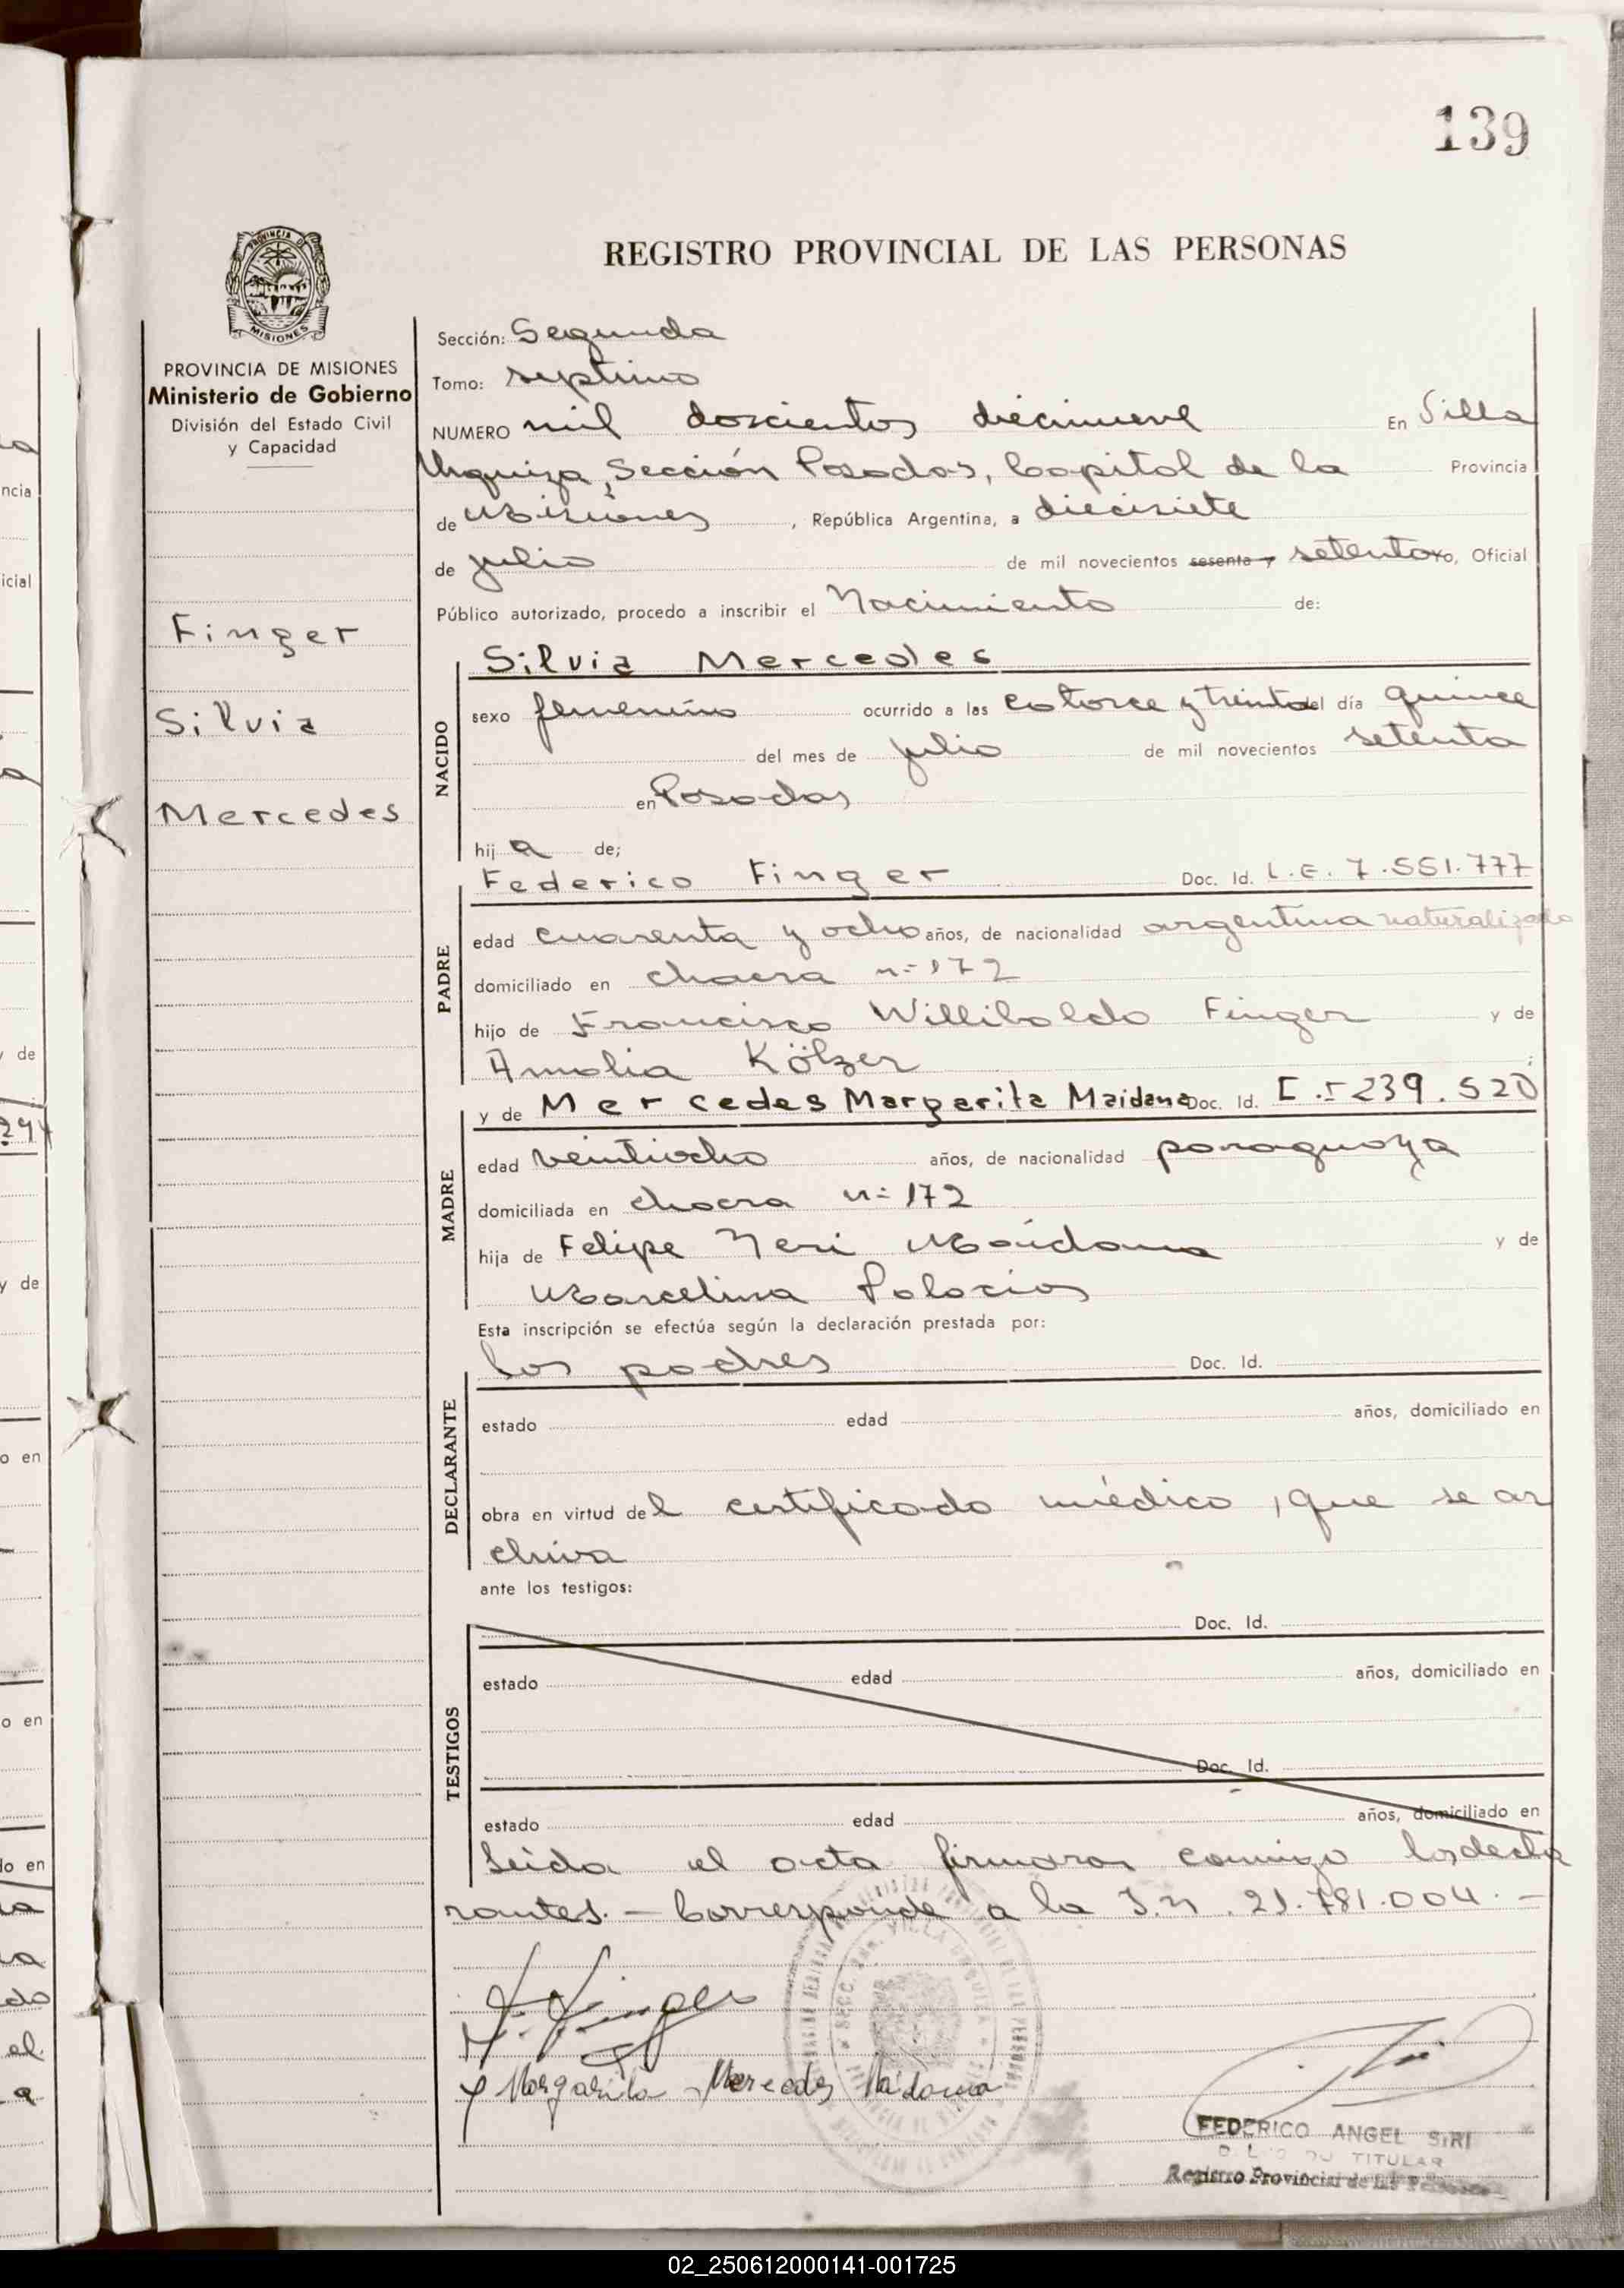 139
PROVINCIA DE
MISIONES
REGISTRO PROVINCIAL DE LAS PERSONAS
PROVINCIA DE MISIONES
Ministerio de Gobierno
División del Estado Civil
y Capacidad
Finger
Silvia
Mercedes
Sección: Segunda
Tomo: septimo
NUMERO mil doscientos diecinueve En Villa
Urquiza, Sección Posadas, Capital de la Provincia
de Misiones, República Argentina, a diecisiete
de julio de mil novecientos sesenta y setenta yo, Oficial
Público autorizado, procedo a inscribir el Nacimiento de:
NACIDO
Silvia Mercedes
sexo femenino ocurrido a las catorce y treinta del día quince
del mes de julio de mil novecientos setenta
en Posadas
hij a de;
PADRE
Federico Finger Doc. Id. L.E. 7.551.777
edad cuarenta y ocho años, de nacionalidad argentina naturalizado
domiciliado en chacra n= 172
hijo de Francisco Williboldo Finger y de
Amalia Kölzer ;
MADRE
y de Mercedes Margarita Maidana Doc. Id. C.I 239.520
edad veintiocho años, de nacionalidad paraguaya
domiciliada en chacra n= 172
hija de Felipe Neri Maidana y de
Marcelina Palacios
Esta inscripción se efectúa según la declaración prestada por:
DECLARANTE
los padres Doc. Id.
estado edad años, domiciliado en
obra en virtud del certificado médico, que se ar
chiva
ante los testigos:
TESTIGOS
Doc. Id.
estado edad años, domiciliado en
Doc. Id.
estado edad años, domiciliado en
Leida el acta firmaron conmigo los decla
rantes. – Corresponde a la I.n. 21.781.004. –
F. Finger
Margarita Mercedes Maidana
FEDERICO ANGEL SIRI
TITULAR
Registro Provincial de las Personas
02_250612000141-001725